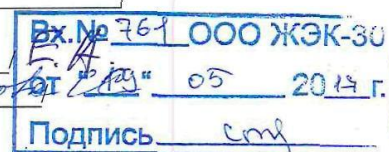 Вх.№ 761 ООО ЖЭК-30
от "29" 05 2017 г.
Подпись